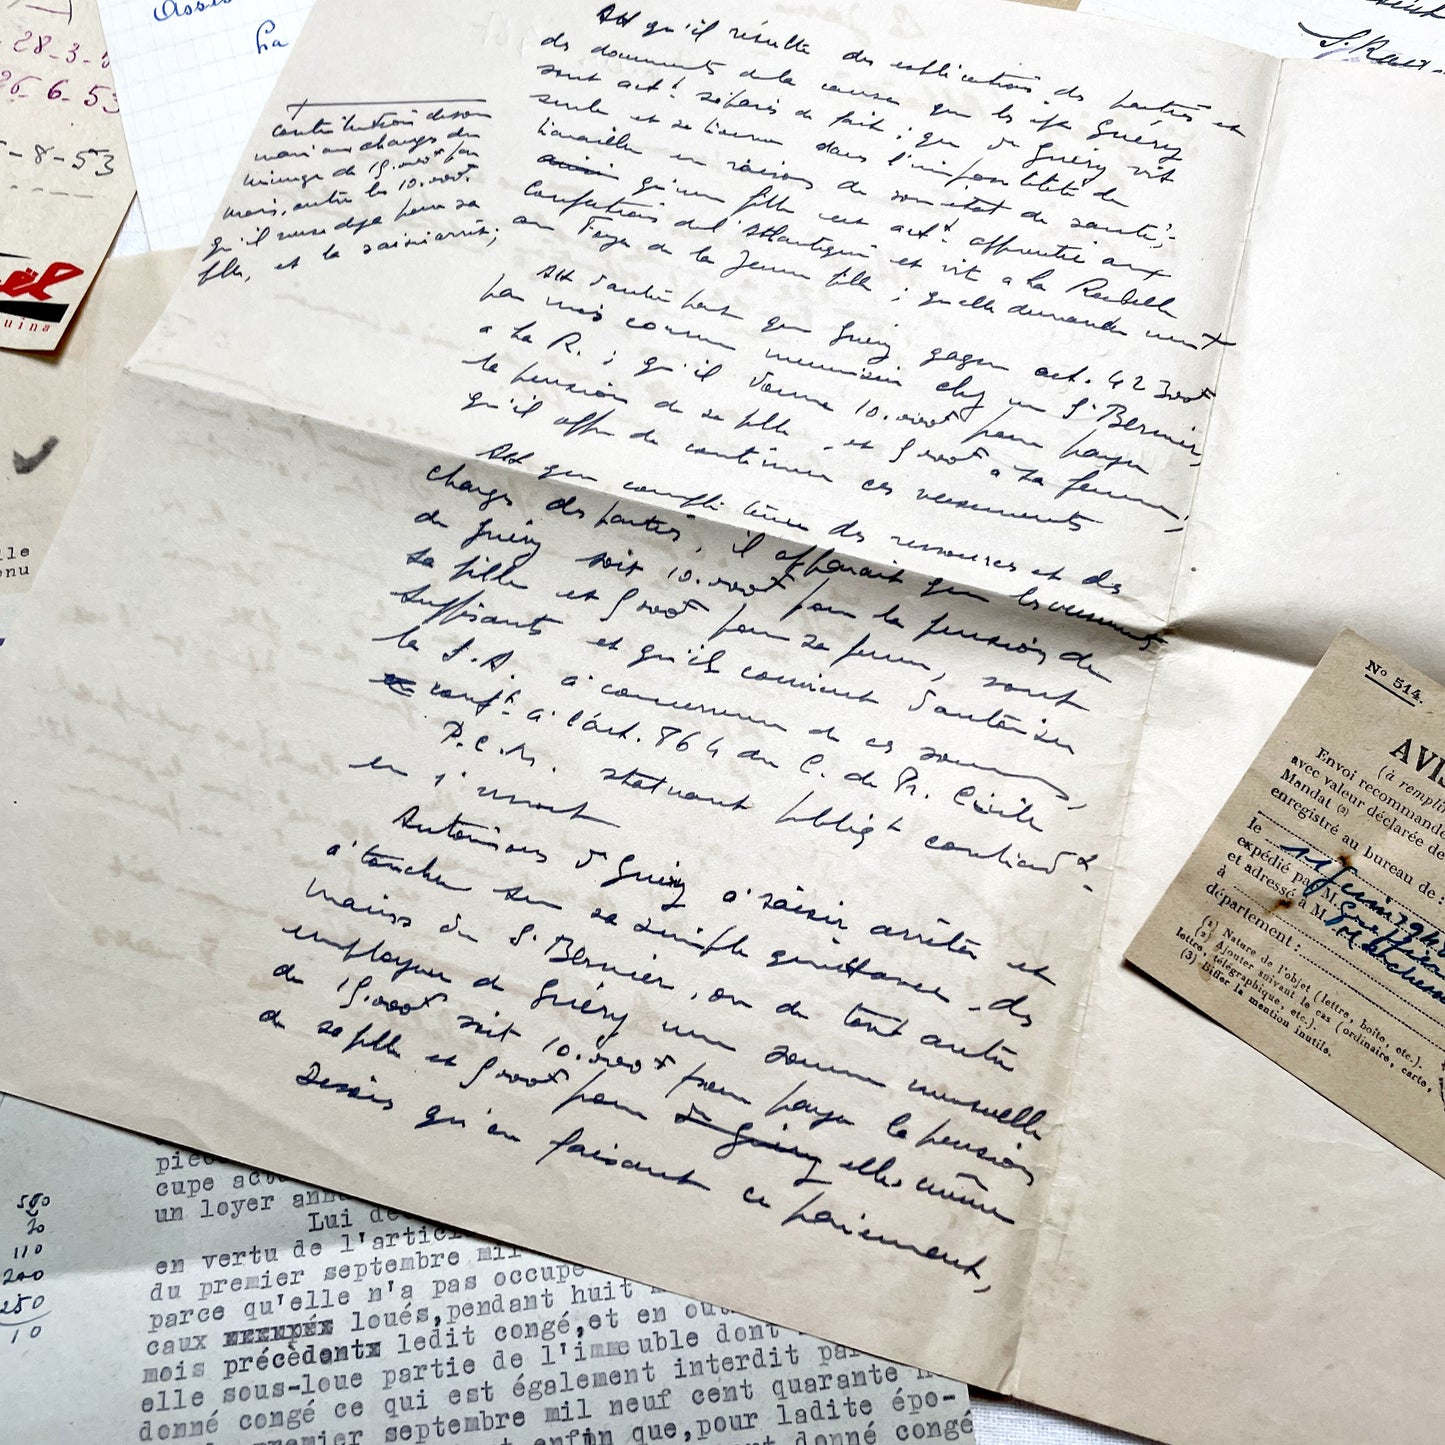 28-3-5
26-6-53
-8-53
el
uina
Assis
La
S. Raex
lle
enu
contribution de son
mari aux charges du
ménage de 15.000f par
mois, outre les 10.000f
qu'il verse déjà pour sa
fille, et la saisie arrêt;
Att qu'il résulte des explications des parties et
des documents de la cause que les ép. Guéry
sont actt séparés de fait; que de Guéry vit
seule et se trouve dans l'impossibilité de
travailler en raison de son état de santé;
qu'une fille est actt apprentie aux
Confections de l'Atlantique et vit à La Rochelle
au Foyer de la Jeune fille; qu'elle demande
Att d'autre part que Guéry gagne act. 42 300f
par mois comme menuisier chez un Sr Bernier,
à La R.; qu'il donne 10.000f pour payer
la pension de sa fille et 5000f à sa femme;
qu'il offre de continuer ces versements
Att que compte tenu des ressources et des
charges des parties, il apparait que les versements
de Guéry soit 10.000f pour la pension de
sa fille et 5000f pour sa femme, sont
suffisants et qu'il convient d'autoriser
la S.A. à concurrence de ces sommes,
conft à l'art. 864 du C. de Pr. Civile
P.C.M. statuant publiqt contradt
en 1er ressort
Autorisons de Guéry à saisir arrêter et
à toucher sur sa simple quittance des
mains du Sr Bernier, ou de tout autre
employeur de Guéry une somme mensuelle
de 15.000f soit 10.000f pour payer la pension
de sa fille et 5000f pour de Guéry elle même
Disons qu'en faisant ce paiement,
No 514.
AVIS
(à remplir
Envoi recommandé
avec valeur déclarée de
Mandat (2)
enregistré au bureau de :
le 11 juin 194
expédié par M. Greffier
et adressé à M. Marchess
à
département :
(1) Nature de l'objet (lettre, boîte, etc.).
(2) Ajouter suivant le cas (ordinaire, carte,
lettre, télégraphique, etc.).
(3) Biffer la mention inutile.
500
20
110
200
250
10
cupe act
un loyer ann
Lui de
en vertu de l'articl
du premier septembre mil
parce qu'elle n'a pas occupé
caux loués,pendant huit
mois précèdentx ledit congé,et en out
elle sous-loue partie de l'immeuble dont
donné congé ce qui est également interdit par
premier septembre mil neuf cent quarante
enfin que,pour ladite épo-
donné congé